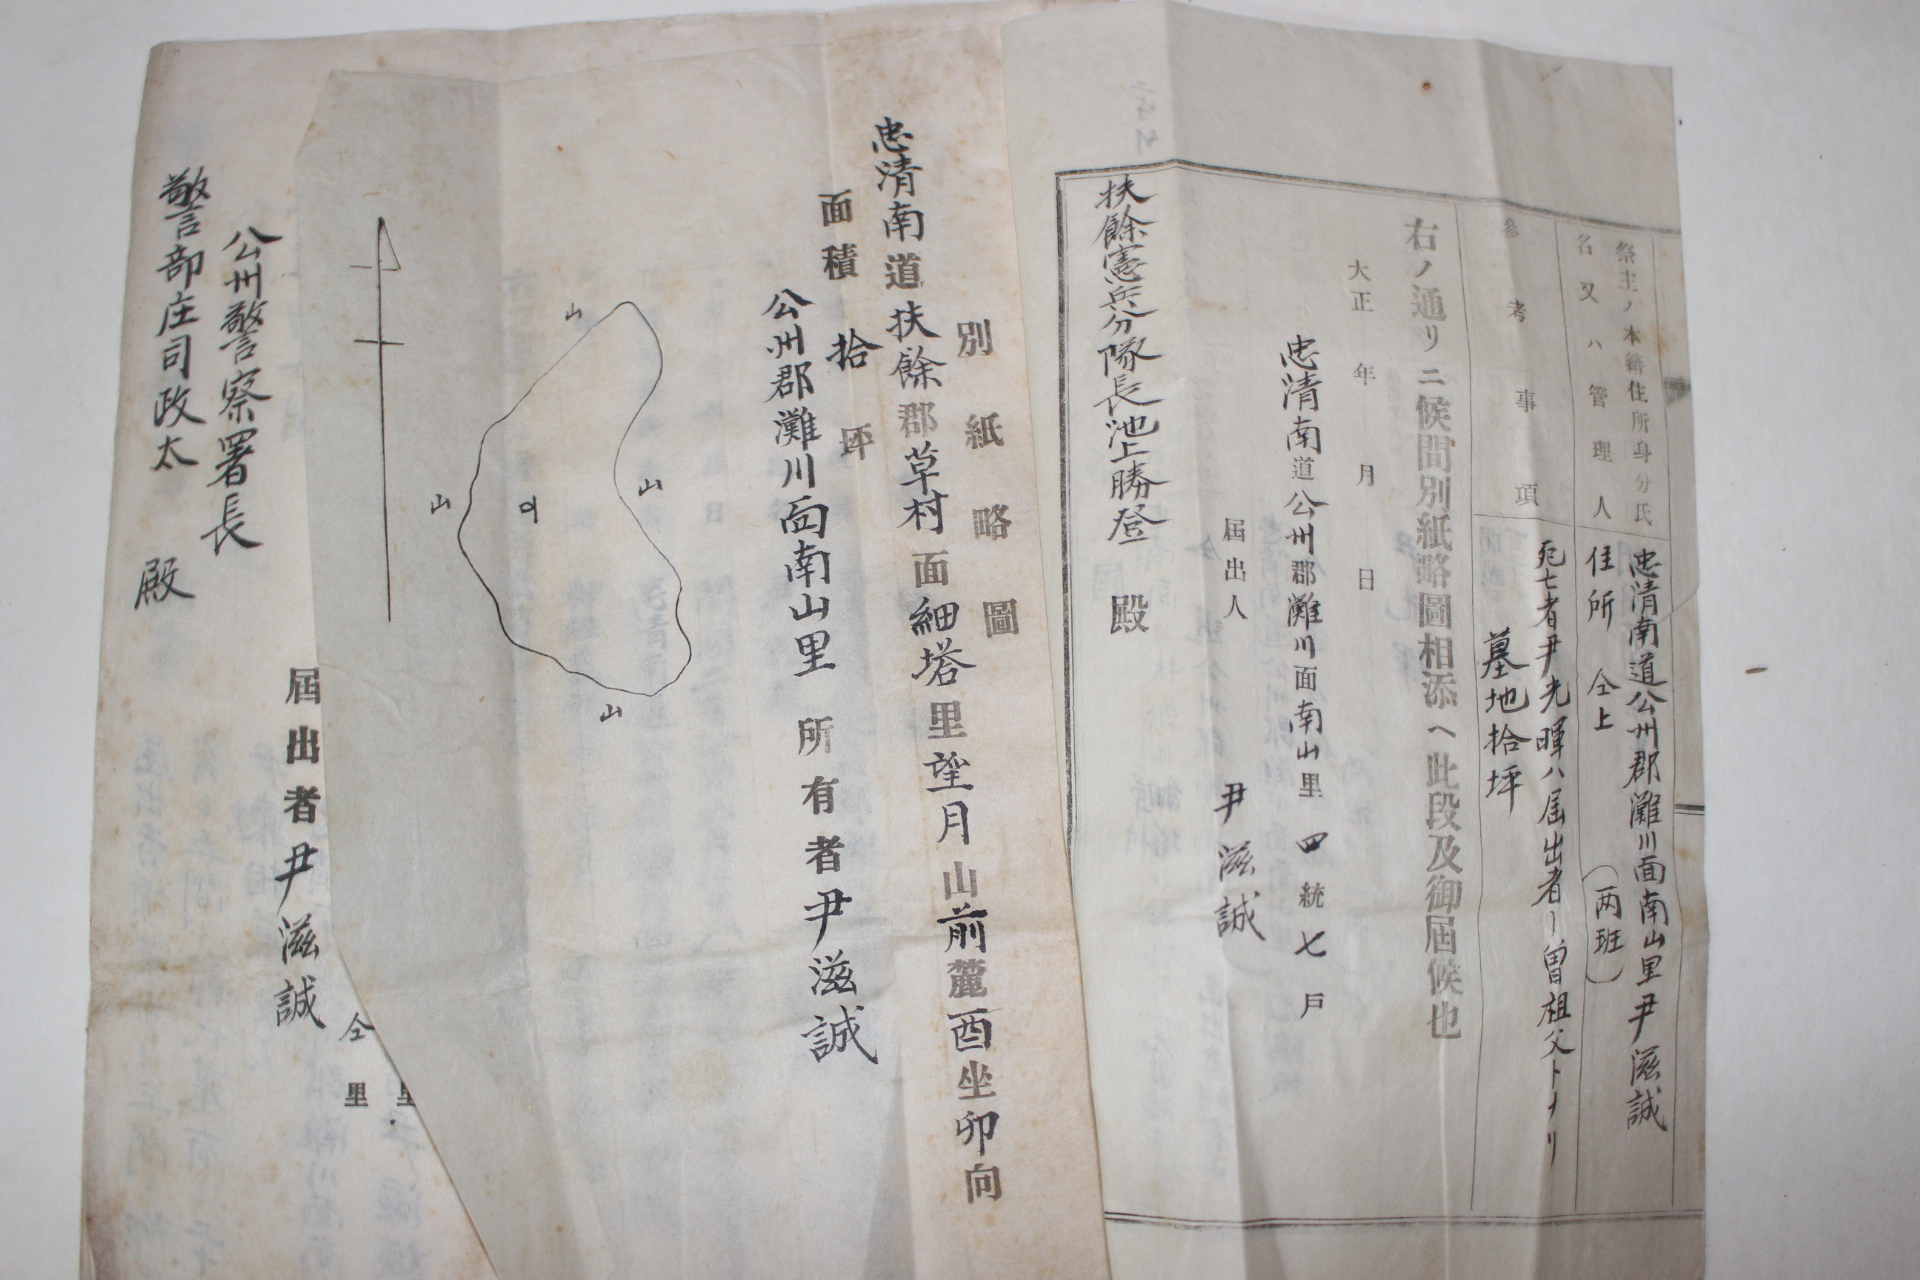 祭主ノ本籍住所身分氏
名又ハ管理人
忠清南道公州郡灘川面南山里尹滋誠
住所 仝上 (両班)
参考事項
死亡者尹光暉ハ届出者ノ曽祖父トナリ
墓地拾坪
右ノ通リニ候間別紙略圖相添ヘ此段及御屆候也
大正 年 月 日
忠清南道公州郡灘川面南山里四統七戸
屆出人 尹滋誠
扶餘憲兵分隊長池上勝登 殿
別紙略圖
忠清南道扶餘郡草村面細塔里望月山前麓酉坐卯向
面積 拾坪
公州郡灘川面南山里 所有者尹滋誠
山
山
山
山
仝里
里
屆出者尹滋誠
公州警察署長
警部庄司政太 殿